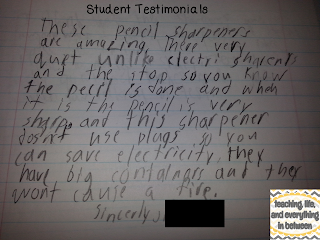 Student Testimonials
These pencil sharpeners
are amazing. There very
quit unlike electri sharents
and the stop so you know
the pecil is done and when
it is the pencil is very
sharp and this sharpener
dosn't use plugs so you
can save electricity. they
have big containors and they
wont cause a fire.
Sincerly,
teaching, life,
and everything
in between